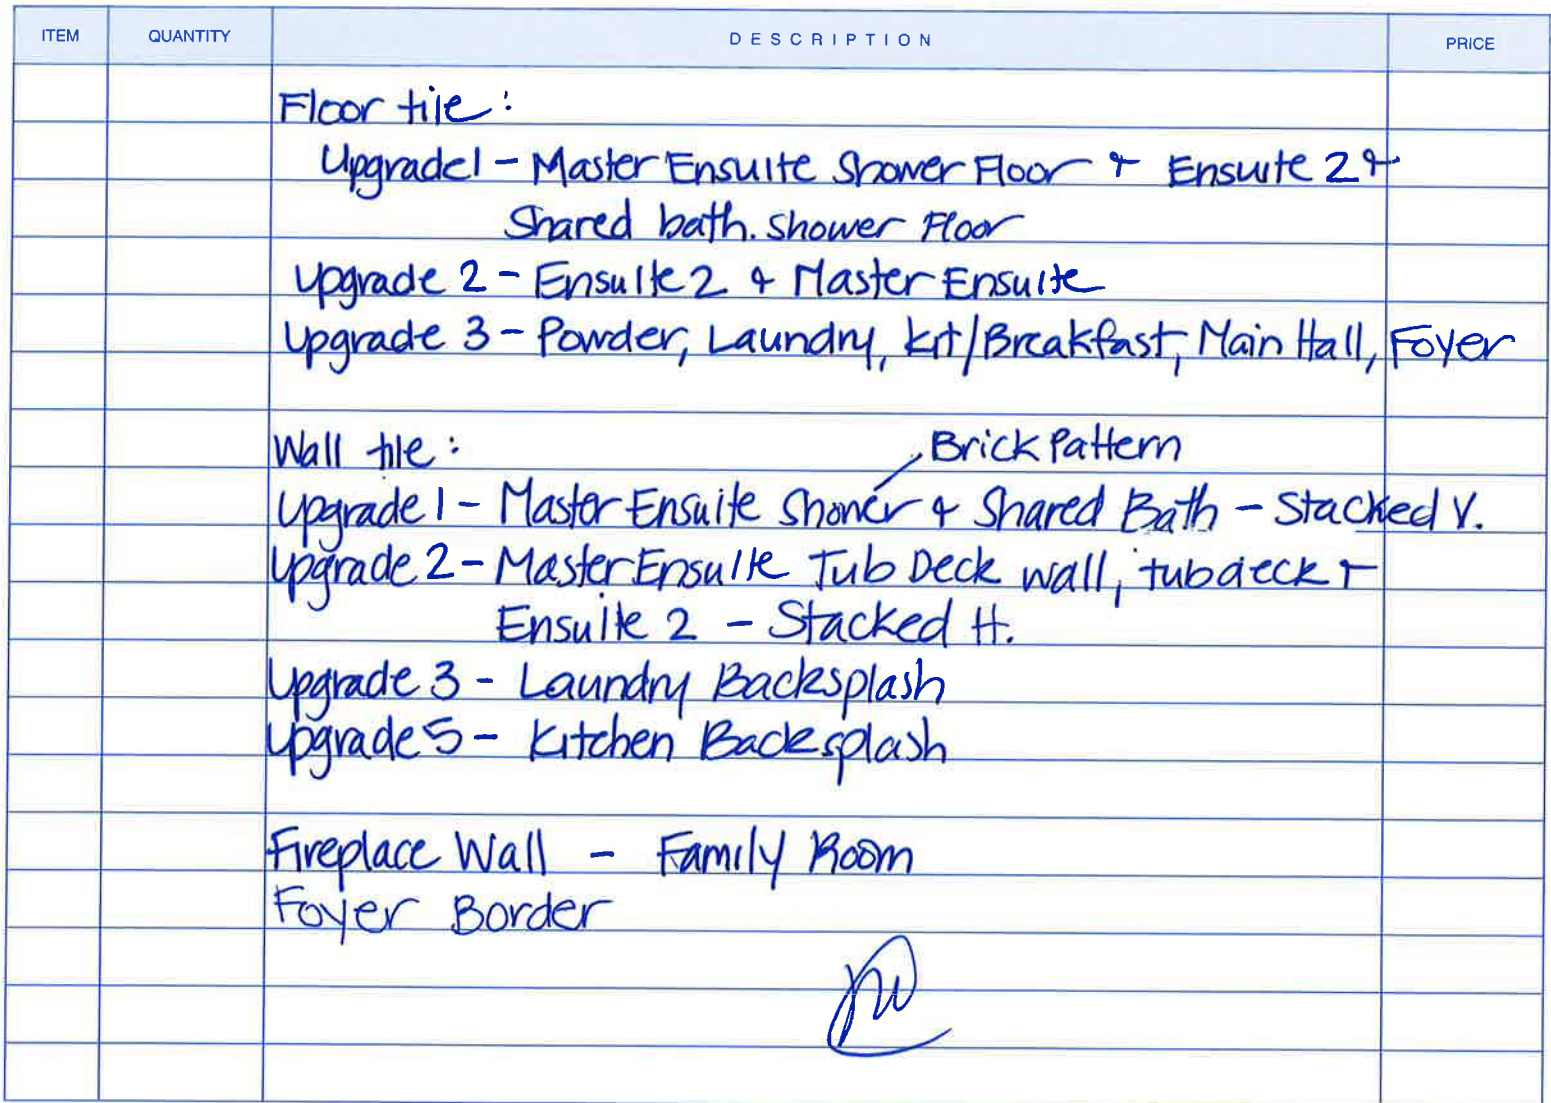 ITEM QUANTITY DESCRIPTION PRICE
Floor tile:
Upgrade 1 - Master Ensuite Shower Floor & Ensuite 2 &
Shared bath. Shower Floor
Upgrade 2 - Ensuite 2 & Master Ensuite
Upgrade 3 - Powder, Laundry, Kit/Breakfast, Main Hall, Foyer
Wall tile:
Brick Pattern
Upgrade 1 - Master Ensuite Shower & Shared Bath - Stacked V.
Upgrade 2 - Master Ensuite Tub Deck wall, tub deck &
Ensuite 2 - Stacked H.
Upgrade 3 - Laundry Backsplash
Upgrade 5 - Kitchen Backsplash
Fireplace Wall - Family Room
Foyer Border